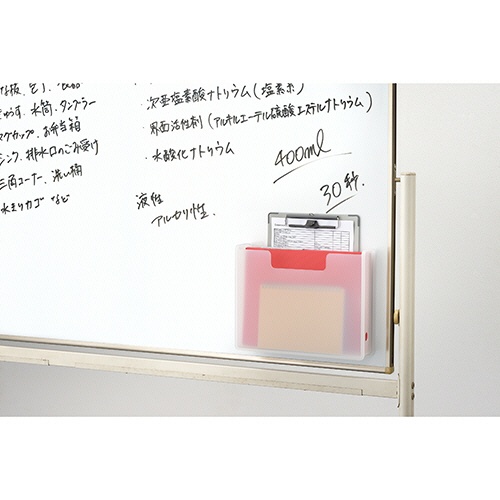 まな板、包丁、食器
きゅうす、水筒、タンブラー
マグカップ、お弁当箱
シンク、排水口のごみ受け
三角コーナー、洗い桶
水まわりカゴ など
・次亜塩素酸ナトリウム(塩素系)
・界面活性剤(アルキルエーテル硫酸エステルナトリウム)
・水酸化ナトリウム
400ml
30秒.
液性
アルカリ性.